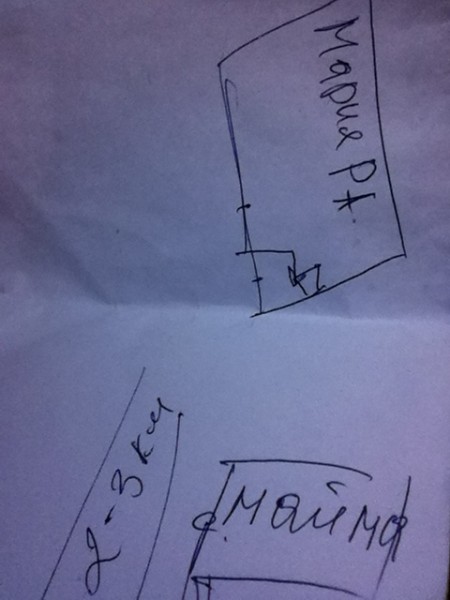 Мария РА.
2-3 км
с. Майма